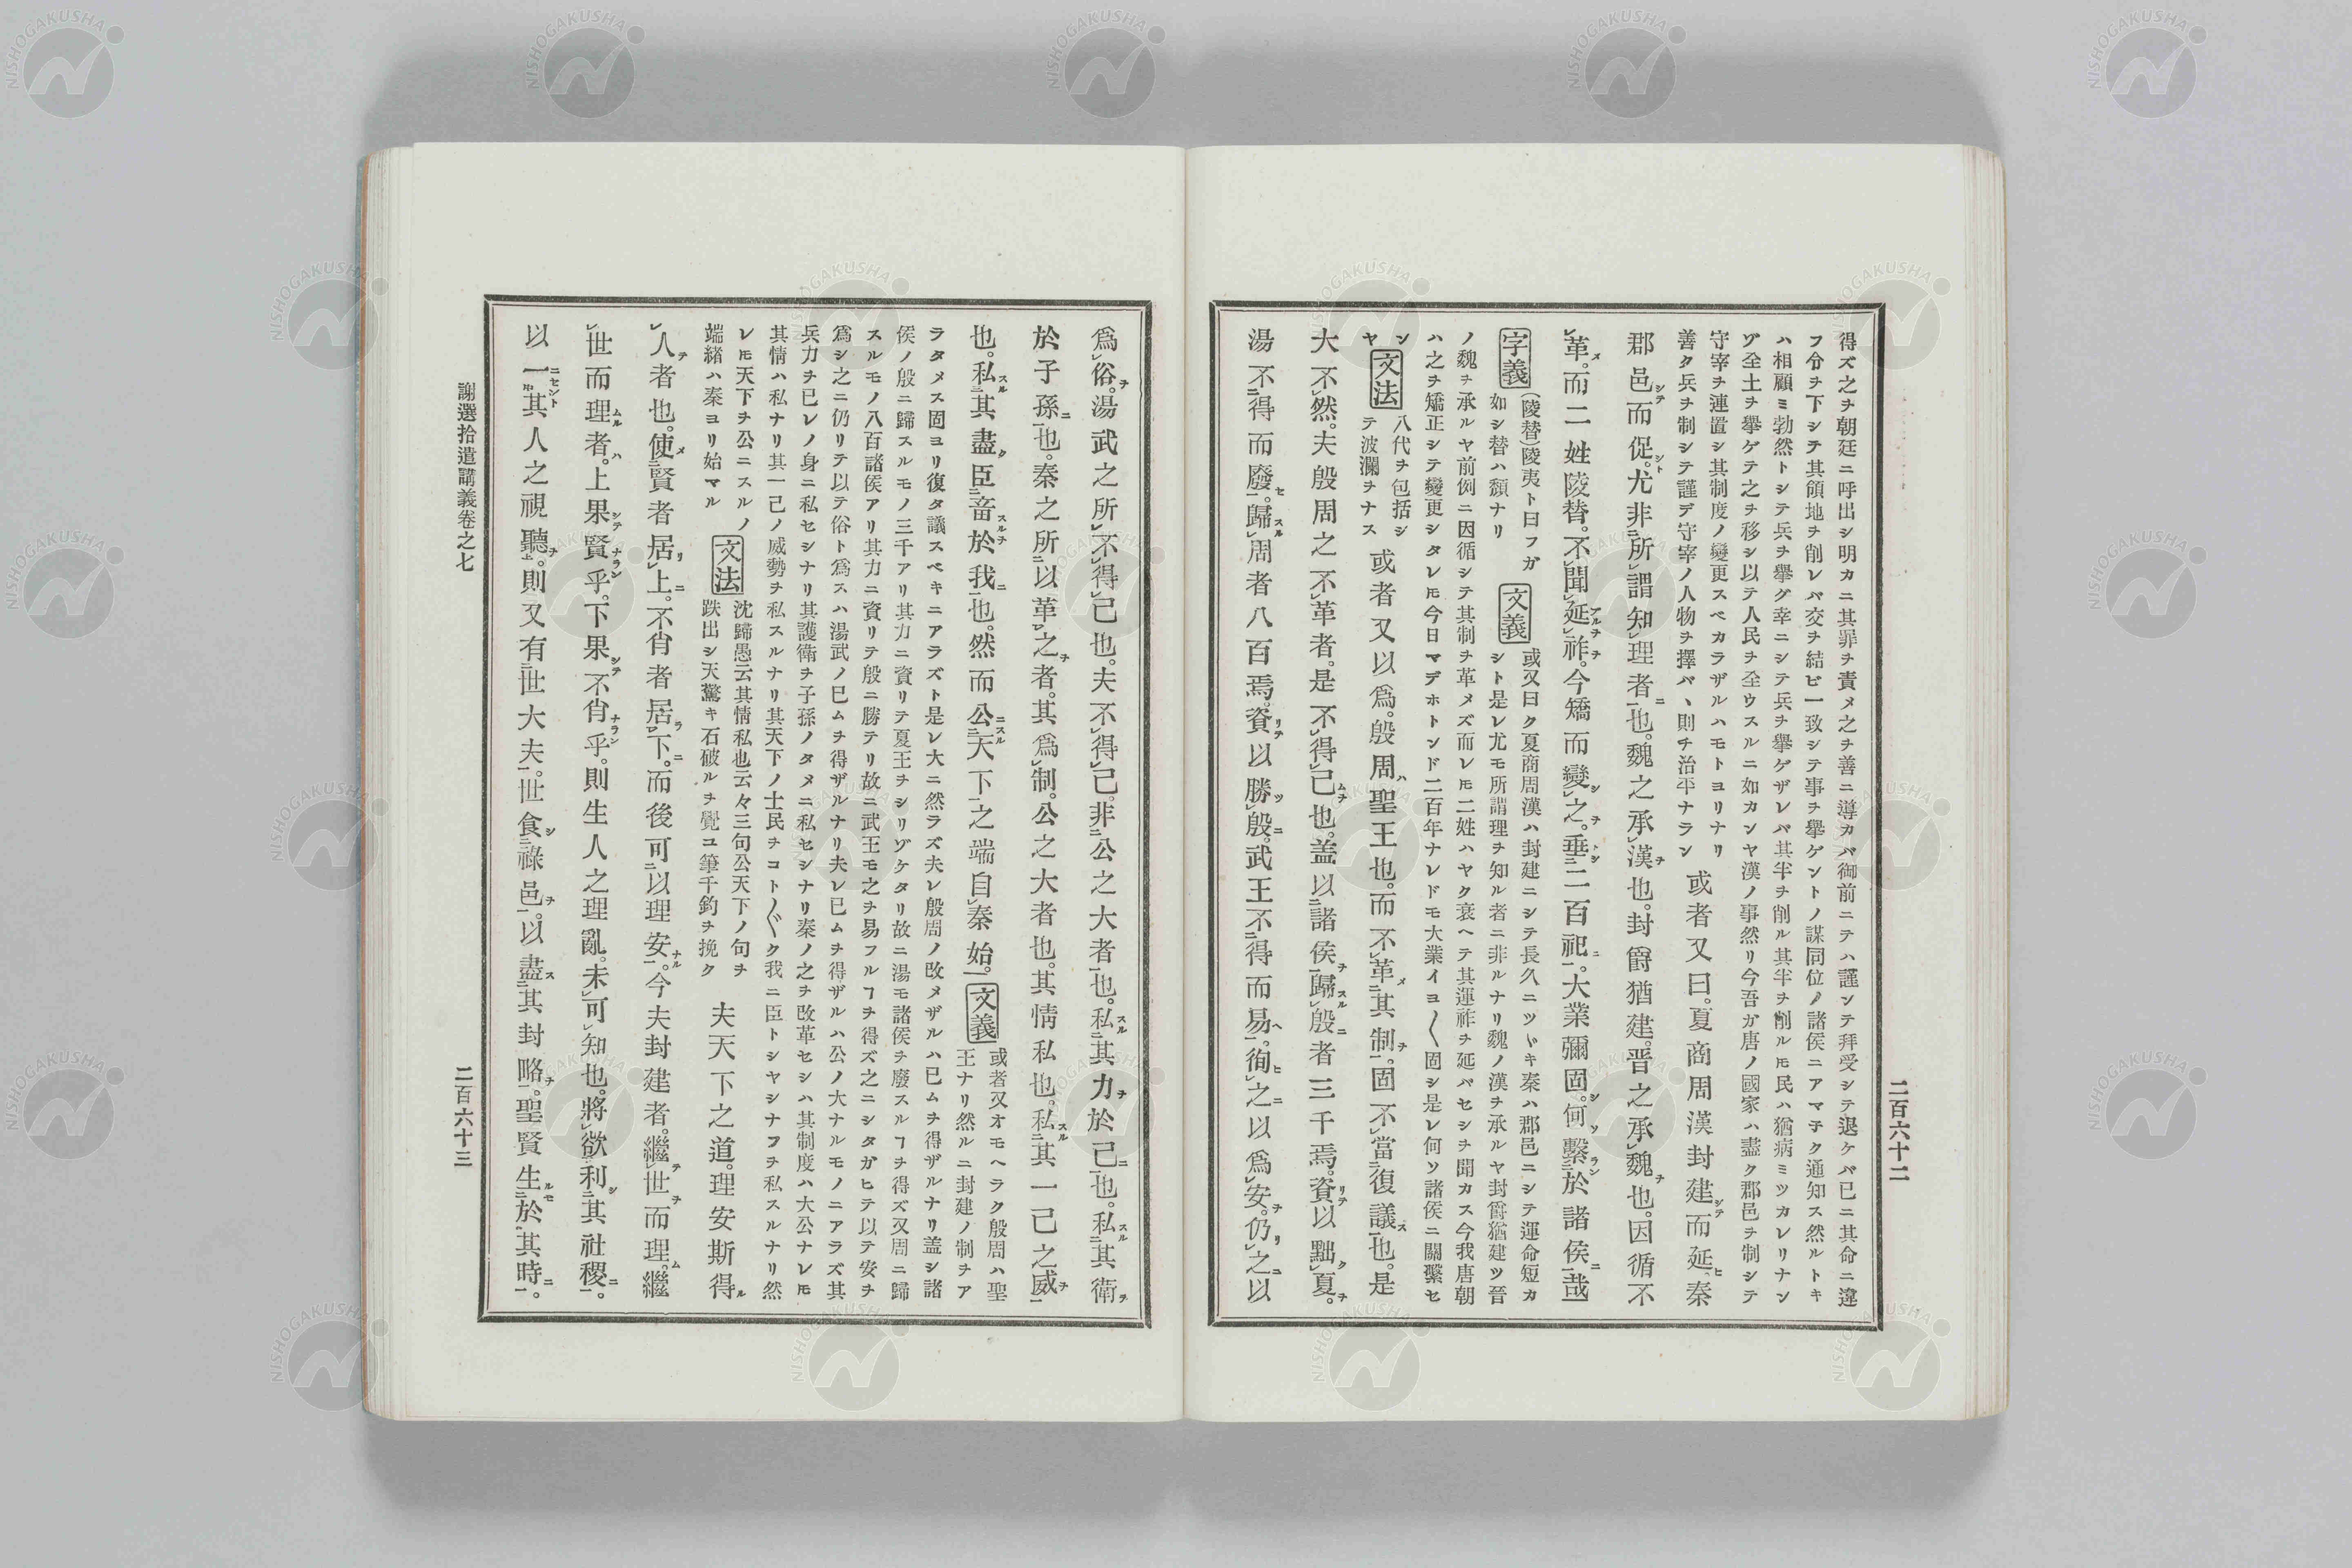 得ズ之ヲ朝廷ニ呼出シ明カニ其罪ヲ責メ之ヲ善ニ導カバ御前ニテハ謹ンテ拜受シテ退ケバ已ニ其命ニ違
フ分ヲ下シテ其領地ヲ削レバ交ヲ結ビ一致シテ事ヲ擧ゲントノ謀同位ノ諸侯ニアマ子ク通知ス然ルトキ
ハ相顧ミ勃然トシテ兵ヲ擧グ幸ニシテ兵ヲ擧ゲザレバ其半ヲ削ル其半ヲ削ルモ民ハ猶病ミツカレリナン
ゾ全土ヲ擧ゲテ之ヲ移シ以テ人民ヲ全ウスルニ如カンヤ漢ノ事然リ今吾ガ唐ノ國家ハ盡ク郡邑ヲ制シテ
守宰ヲ連置シ其制度ノ變更スベカラザルハモトヨリナリ
善タ兵ヲ制シテ謹デ守宰ノ人物ヲ擇バヽ則チ治平ナラン 或者又曰。夏商周漢封建シテ而延ヒ。秦
郡邑シテ而促シト。尤非所謂知理者ニ也。魏之承漢ヲ也。封爵猶建。晋之承魏ヲ也。因循不
革メ。而二姓陵替。不聞延アルヲ祚ヲ。今矯而變シ之ヲ。垂トシ二百祀ニ。大業彌固シ。何ソ繫ラン於諸侯ニ哉
字義 (陵替)陵夷ト曰フガ
如シ替ハ頽ナリ 文義 或又曰ク夏商周漢ハ封建ニシテ長久ニツヾキ秦ハ郡邑ニシテ運命短カ
シト是レ尤モ所謂理ヲ知ル者ニ非ルナリ魏ノ漢ヲ承ルヤ封爵猶建ツ晉
ノ魏ヲ承ルヤ前例ニ因循シテ其制ヲ革メズ而レモ二姓ハヤク衰ヘテ其運祚ヲ延バセシヲ聞カス今我唐朝
ハ之ヲ矯正シテ變更シタレモ今日マデホトンド二百年ナレドモ大業イヨ〳〵固シ是レ何ソ諸侯ニ關繫セ
ンヤ 文法 八代ヲ包括シ
テ波瀾ヲナス 或者又以爲。殷周ハ聖王也。而不革メ其制ヲ。固不當復議ス也。是
大不然。夫殷周之不革者。是不得已ムヲ也。盖以諸侯ヲ歸スル殷ニ者三千焉。資リテ以黜ク夏ヲ。
湯不得而廢セ。歸スル周者八百焉。資リテ以勝ツ殷ニ。武王不得而易ヘ。徇ヒ之ニ以爲安ヲ。仍リ之ニ以
二百六十二
爲俗ヲ。湯武之所不得已也。夫不得已。非公之大者也。私スル其力ヲ於己ニ也。私スル其衛ヲ
於子孫ニ也。秦之所以革之ヲ者。其爲制。公之大者也。其情私也。私スル其一己之威ヲ
也。私スル其盡ク臣畜スルヲ於我ニ也。然而公ニスル天下之端自秦始。 文義 或者又オモヘラク殷周ハ聖
王ナリ然ルニ封建ノ制ヲア
ラタメス固ヨリ復タ議スベキニアラズト是レ大ニ然ラズ夫レ殷周ノ改メザルハ已ムヲ得ザルナリ盖シ諸
侯ノ殷ニ歸スルモノ三千アリ其力ニ資リテ夏王ヲシリゾケタリ故ニ湯モ諸侯ヲ廢スルヿヲ得ズ又周ニ歸
スルモノ八百諸侯アリ其力ニ資リテ殷ニ勝テリ故ニ武王モ之ヲ易フルヿヲ得ズ之ニシタガヒテ以テ安ヲ
爲シ之ニ仍リテ以テ俗ト爲スハ湯武ノ已ムヲ得ザルナリ夫レ已ムヲ得ザルハ公ノ大ナルモノニアラズ其
兵力ヲ已レノ身ニ私セシナリ其護衛ヲ子孫ノタメニ私セシナリ秦ノ之ヲ改革セシハ其制度ハ大公ナレモ
其情ハ私ナリ其一己ノ威勢ヲ私スルナリ其天下ノ士民ヲコト〴〵ク我ニ臣トシヤシナフヲ私スルナリ然
レモ天下ヲ公ニスルノ
端緒ハ秦ヨリ始マル 文法 沈歸愚云其情私也云々三句公天下ノ句ヲ
跌出シ天驚キ石破ルヲ覺ユ筆千鈞ヲ挽ク 夫天下之道。理安斯得ル
人ヲ者也。使メ賢者居リ上ニ。不肖者居ラ下ニ。而後可以理安ナル。今夫封建者。繼テ世ヲ而理ム。繼
世而理ムル者ハ。上果シテ賢ナラン乎。下果シテ不肖ナラン乎。則生人之理亂。未可知也。將欲利シ其社稷ニ。
以一ニセント其人之視聽ヲ。則又有世大夫。世食シ祿邑ヲ。以盡ス其封略ヲ。聖賢生ルモ於其時ニ。
謝選拾遺講義卷之七
二百六十三
NISHOGAKUSHA